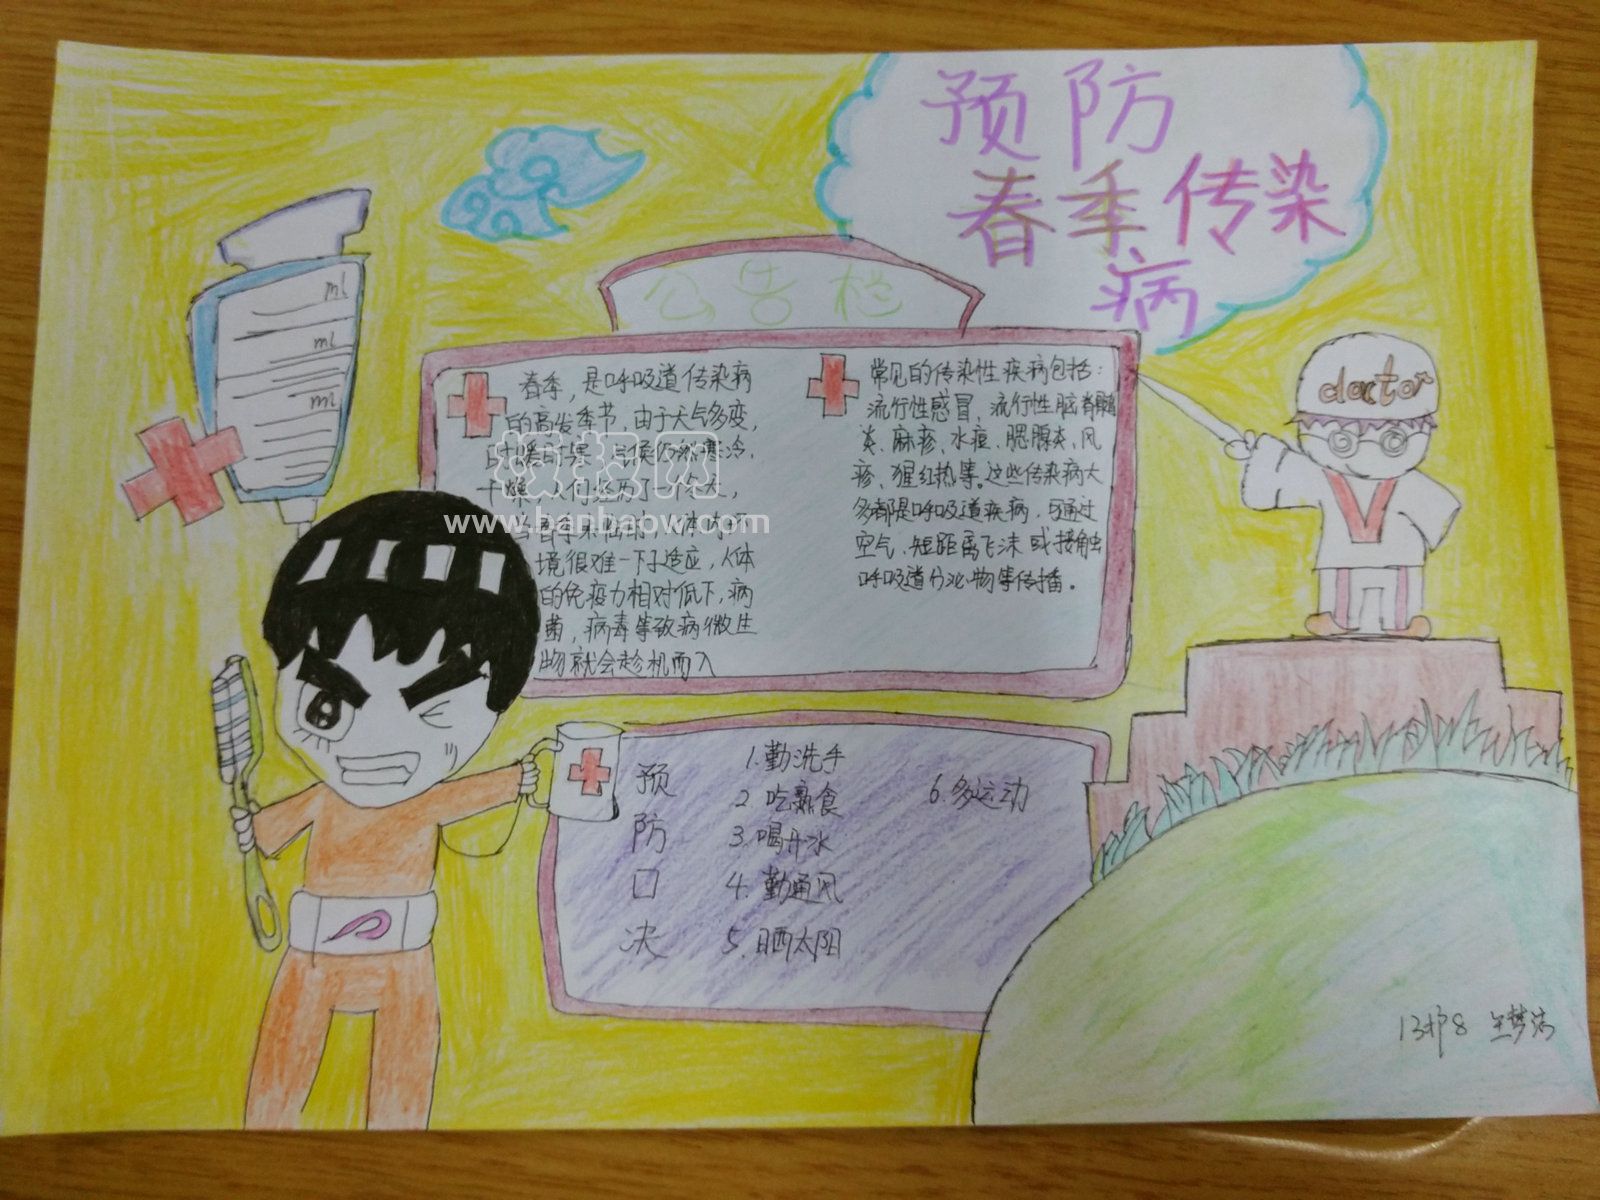 预防
春季传染
病
公告栏
春季,是呼吸道传染病
的高发季节,由于天气多变,
时暖时寒 气候仍然寒冷,
干燥 人们经历了一个冬天,
当春季来临时,人体内环
境很难一下子适应,人体
的免疫力相对低下,病
菌,病毒等致病微生
物就会趁机而入
常见的传染性疾病包括:
流行性感冒、流行性脑脊髓
炎、麻疹、水痘、腮腺炎、风
疹、猩红热等。这些传染病大
多都是呼吸道疾病,可通过
空气、短距离飞沫或接触
呼吸道分泌物等传播。
预
防
口
决
1.勤洗手
2.吃熟食
3.喝开水
4.勤通风
5.晒太阳
6.多运动
doctor
ml
ml
ml
www.banbaow.com
13护8 王梦洁